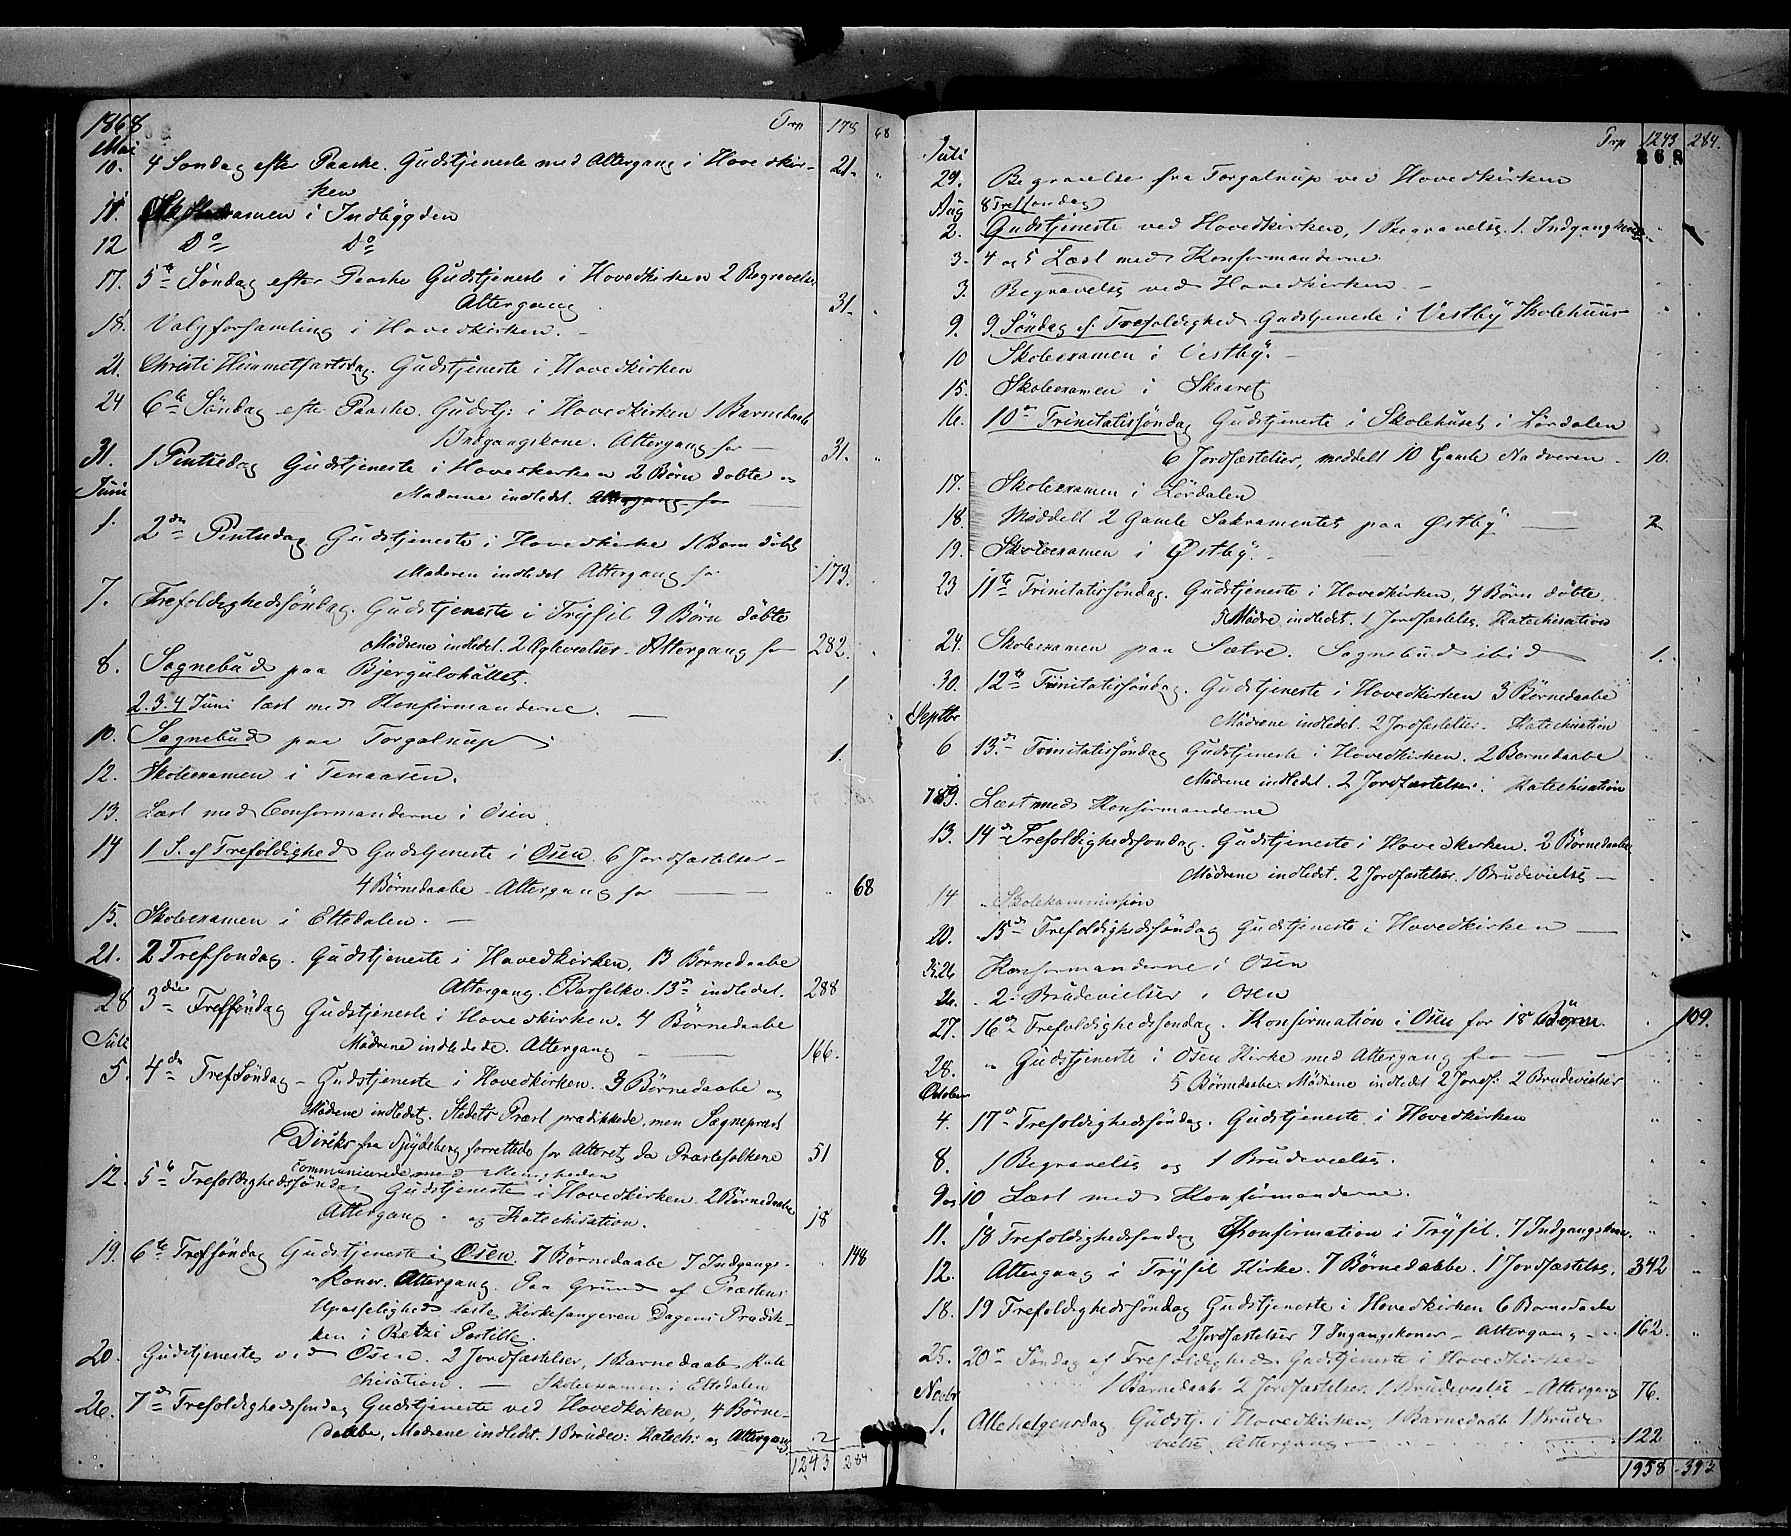 1868 Trp 178 68
Mai
10. 4 Søndag efter Paaske. Gudstjeneste med Altergang i Hovedkir- 21. "
ken
11. Skoleexamen i Indbÿgden
12 Do Do
17. 5te Søndag efter Paaske Gudstjeneste i Hovedkirken 2 Begravelser
Altergang 31.
18. Valgforsamling i Hovedkirken. -
21. Christi Himmelfartsdag. Gudstjeneste i Hovedkirken
24 6te Søndag efter Paaske. Gudstj: i Hovedkirken 1 Barnedaab
1 Indgangskone. Altergang for — 31. "
31. 1 Pintsedag Gudstjeneste i Hovedkirken 2 Børn døbte
Juni Mødrene indledet. Altergang for
1. 2den Pintsedag Gudstjeneste i Hovedkirke 1 Barn døbt
Moderen indledet Altergang for 173.
7. Trefoldighedssöndag. Gudstjeneste i Trÿsil 9 Børn döbte
Mödrene indledet. 2 Ægtevielser - Altergang for 282.
8. Sognebud paa Bjergulvhallet. 1
2.3.4 Juni læst med Konfirmanderne. —
10. Sognebud paa Torgalsup 1.
12. Skoleexamen i Tenaasen.
13. Læst med Conformanderne i Osen
14 1 S. ef Trefoldighed Gudstjeneste i Osen. 6 Jordfæstelser -
4 Börnedaabe - Altergang for — " 68
15. Skoleexamen i Eltedalen. -
21. 2 Trefsondag. Gudstjeneste i Hovedkirken, 13 Börnedaabe
Altergang. Barselko. 13 indledet. 288
28 3die Trefsöndag Gudstjeneste i Hovedkirken. 4 Börnedaabe
Juli Mödrene indledede. Altergang — 166.
5. 4de TrefSöndag - Gudstjeneste i Hovedkirken. 3 Börnedaabe og
Mödrene indledet. Stedets Præst prædikkede, men Sognepræst
Diriks fra Spÿdeberg forrettede for Alteret, da Præstefolkene 51
communicerede med Menigheden
12. 5te Trefoldighedssöndag Gudstjeneste i Hovedkirken. 2 Börnedaabe
Altergang. og Katechisation. 18
19. 6te Trefsöndag Gudstjeneste i Osen. 7 Börnedaabe 7 Indgangs- " 148
koner. Altergang. Paa Grund af Præstens
Upasselighed læste Kirkesangeren Dagens Prædik-
ken i Postille.
20. Gudstjeneste ved Osen. 2 Jordfæstelser, 1 Barnedaab Kate
chisation. — Skoleexamen i Eltedalen
26. 7de Trefoldighedssöndag Gudstjeneste ved Hovedkirken, 4 Börne-
daabe, Mødrene indledet. 1 Brudev: Katech: og Altergang 2
1243 284
Trp 1243 284.
268
Juli
29. Begravelse fra Torgalsup ved Hovedkirken
Aug 8 Trefsondag
2. Gudstjeneste ved Hovedkirken, 1 Begravelse. 1 Indgangskone
3. 4 og 5 Læst med Konformanderne
3. Begravelse ved Hovedkirken. -
9. 9. Söndag ef Trefoldighed Gudstjeneste i Vestbÿ Skolehuus
10 Skoleexamen i Vestbÿ. -
15. Skoleexamen i Skaaret
16. 10de Trinitatissöndag Gudstjeneste i Skolehuset i Lördalen
6 Jordfæstelser, meddelt 10 Gamle Nadveren - 10.
17. Skoleexamen i Lördalen
18. Meddelt 2 Gamle Sakramentet paa Østbÿ — 2
19. Skoleexamen i Østbÿ. -
23 11te Trinitatissöndag. Gudstjeneste i Hovedkirken, 4 Börn døbte.
5 Mødre indledet. 1 Jordfæstelse. Katechisation
24. Skoleexamen paa Sætre. Sognebud ibid 1.
30. 12te Trinitatissöndag. Gudstjeneste i Hovedkirken 3 Börnedaabe
Septbr Mödrene indledet. 2 Jordfæstelser. Katechisation
6 13de Trinitatissöndag Gudstjeneste i Hovedkirken. 2 Børnedaabe
Mödrene indledet. 2 Jordfæstelser. Katechisation
7 8 9. Læst med Konfirmanderne
13. 14de Trefoldighedssondag. Gudstjeneste i Hovedkirken. 2 Börnedaabe
Mødrene indledet. 2 Jordfæstelser. 1 Brudevielse —
14 Skolekommission
20. 15de Trefoldighedssöndag Gudstjeneste i Hovedkirken —
25. 26 Konformanderne i Osen
26. 2 Brudevielser i Osen
27. 16de Trefoldighedssöndag. Konfirmation i Osen for 18 Børn. 109.
28. " Gudstjeneste i Osen Kirke med Altergang for —
Octobr 5 Börnedaabe. Mødrene indledet 2 Jordf: 2 Brudevielser
4. 17de Trefoldighedssöndag. Gudstjeneste i Hovedkirken
8. 1 Begravelse og 1 Brudevielse.
9 og 10 Læst med Konfirmanderne.
11. 18 Trefoldighedssondag Konfirmation i Trÿsil. 7 Indgangskoner
12. Altergang i Trÿsil Kirke. 7 Börnedaabe. 1 Jordfæstelse. 342
18. 19 Trefoldighedssöndag Gudstjeneste i Hovedkirken 6 Børnedaabe
2 Jordfæstelser 7 Ingangskoner - Altergang - 162.
25. 20de Söndag ef Trefoldighed. Gudstjeneste i Hovedkirken
Novbr 1 Barnedaab. 2 Jordfæstelser. 1 Brudevielse - Altergang 76.
1. Allehelgensdag Gudstj. i Hovedkirken, 1 Barnedaab 1 Brude
vielse. Altergang — 122
1958 393